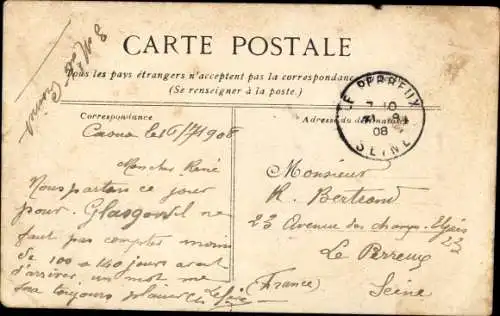 CARTE POSTALE
Tous les pays étrangers n'acceptent pas la correspondance
(Se renseigner à la poste.)
Correspondance
Adresse du destinataire
LE PERREUX
7 10
08
SEINE
le 6/7/1908
Mon cher René
Nous partons ce jour
pour Glasgow il ne
faut pas compter moins
de 100 a 140 jours avant
d'arriver. un mot me
fera toujours plaisir
Monsieur
R. Bertrand
23 Avenue des champs. Elysés
23
Le Perreux
(France)
Seine